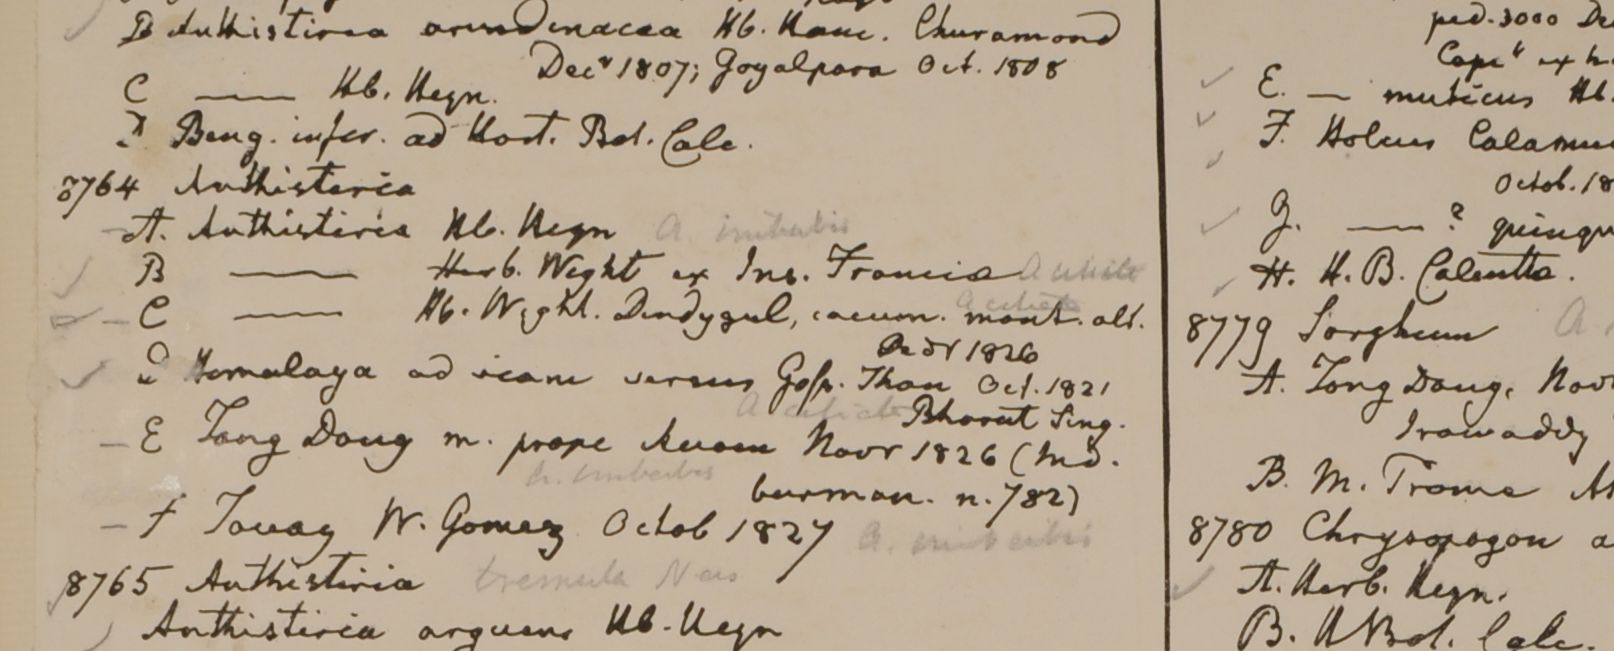 B Anthistiria arundinacea Hb. Ham. Churamond
Decr 1807; Goyalpara Oct. 1808
C —— Hb. Heyn.
D Beng. infer. ad Hort. Bot. Calc.
8764 Anthistiria
A. Anthistiria Hb. Heyn A. imberbis
B —— Herb. Wight ex Ins. Francia A ciliata
C —— Hb. Wight. Dindygul, cacum. mont. alt. A ciliata
1826
D Hemalaya ad viam versus Gosp. Than Oct. 1821
A ciliata Bharut Sing.
E Tong Doug m. prope Novr 1826 (Ind.
A. imberbis burman. n. 782)
F Tavay W. Gomez Octob 1827 A. imberbis
8765 Anthistiria tremula Nees
Anthistiria arguens Hb. Heyn
ped. 3000
E. — muticus Hb.
F. Holcus Calamu
Octob. 18
G. —— ?
H. H. B. Calcutta.
8779 Sorghum A
A. Tong Doug, Nov
Irawaddy
B. M.
8780 Chrysopogon a
A. Herb. Heyn.
B. H Bot. Calc.